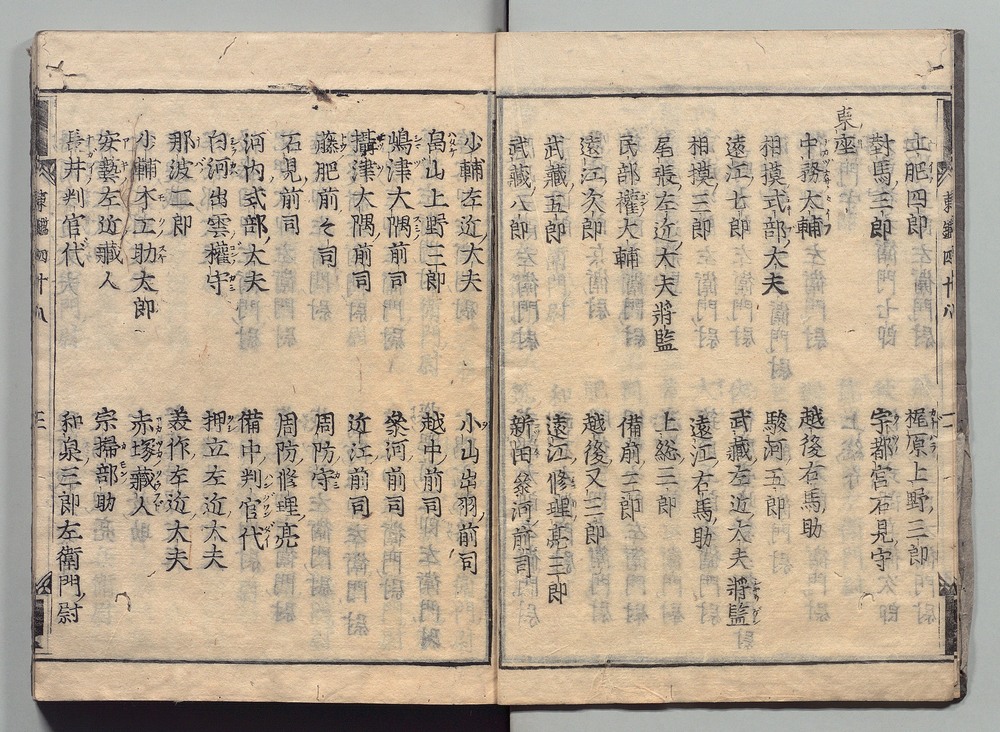 土肥四郎　梶原上野三郎
對馬三郎　宇都宮石見守
東座
中務太輔　越後右馬助
相摸式部太夫　駿河五郎
遠江七郎　武藏左近大夫將監
相摸三郎　遠江右馬助
尾張左近大夫將監　上総三郎
民部權大輔　備前三郎
遠江次郎　越後又三郎
武藏五郎　遠江修理亮三郎
武藏八郎　新田参河前司
小輔左近大夫　小山出羽前司
畠山上野三郎　越中前司
嶋津大隅前司　参河前司
攝津大隅前司　近江前司
藤肥前々司　周防守
石見前司　周防修理亮
河内式部大夫　備中判官代
白河出雲權守　押立左近大夫
那波二郎　美作左近大夫
小輔木工助太郎　赤塚藏人
安藝左近藏人　宗掃部助
長井判官代　和泉三郎左衛門尉
東鑑四十八　二
東鑑四十八　三